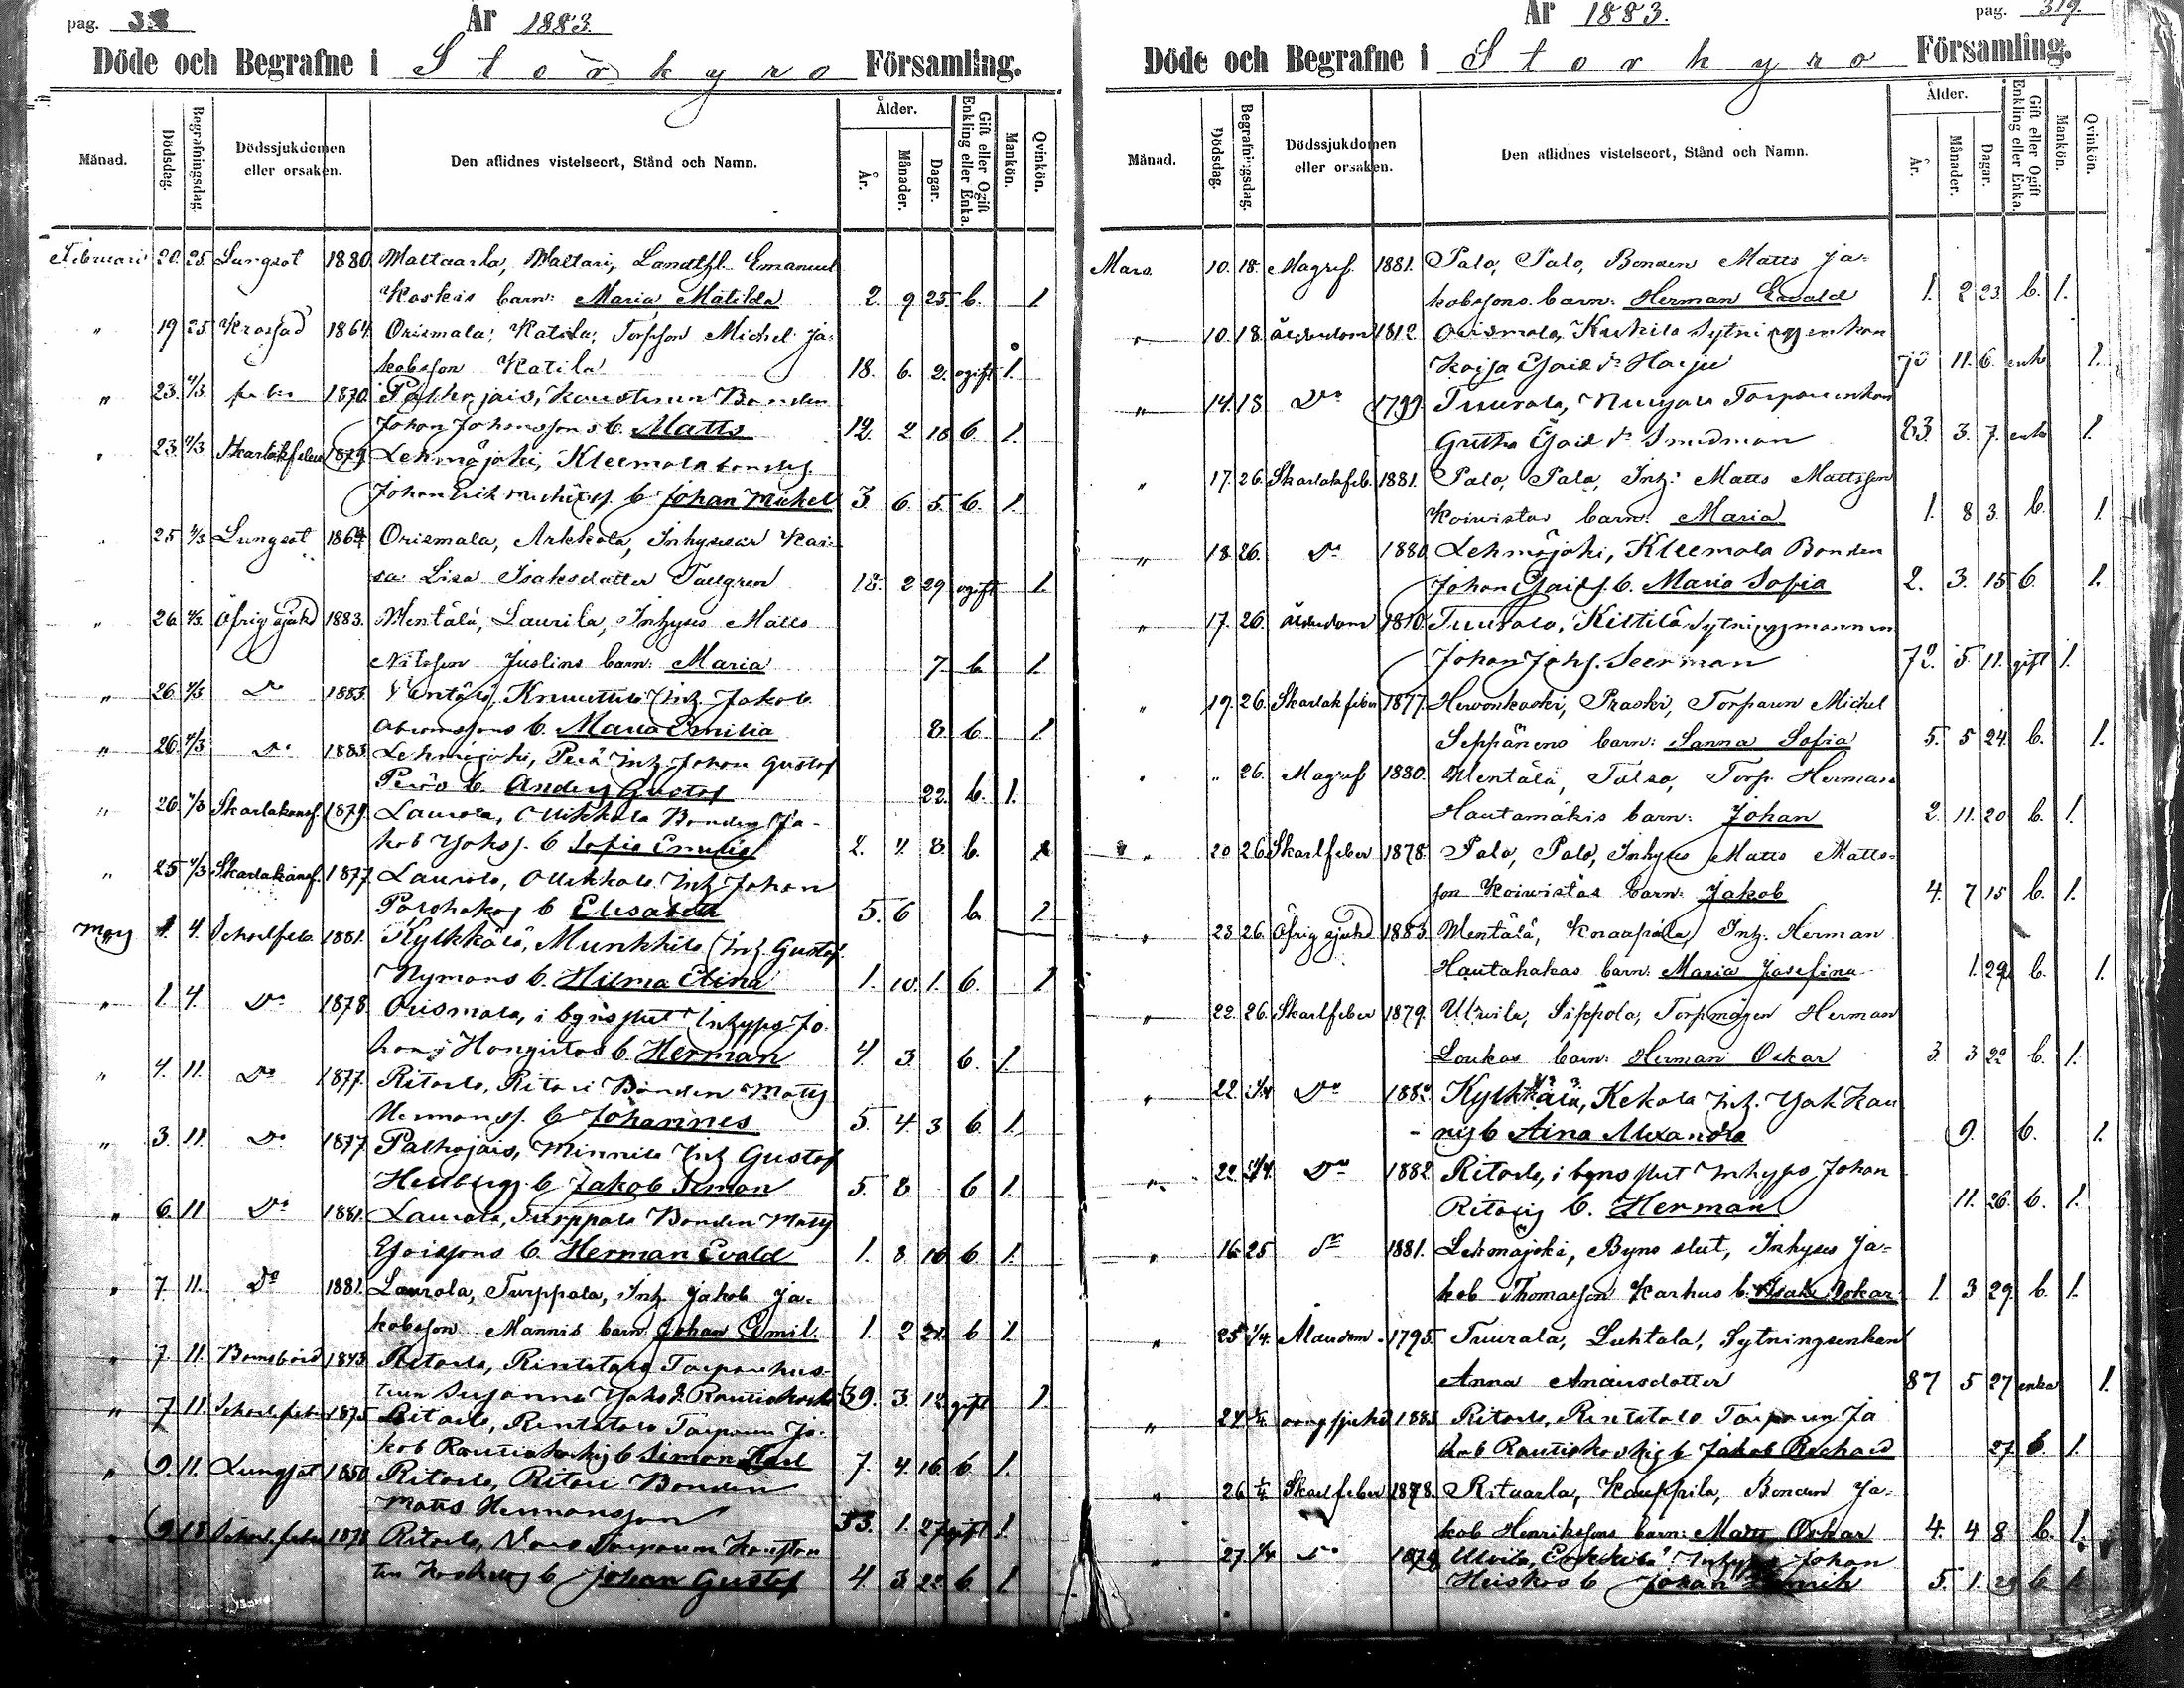 pag. 318
År 1883.
Döde och Begrafne i Storkyro Församling.
Månad.
Dödsdag.
Begrafningsdag.
Dödssjukdomen eller orsaken.
Den aflidnes vistelseort, Stånd och Namn.
Ålder.
År.
Månader.
Dagar.
Gift eller Ogift Enkling eller Enka.
Mankön.
Qvinkön.
Februari 20. 25. Lungsot 1880. Maltaarla, Maltari, Landthl. Emanuel
Koskis barn: Maria Matilda 2. 9 25 b. 1
" 19 25. 1864. Orismala, Katila, Michel Ja-
kobsson Katila 18. 6. 2. ogift 1.
" 23. 4/3. 1870. Palhojais, Bonden
Johan Johanssons b. Matts 12. 2 18 b. 1.
" 23. 4/3 Skarlakfeber 1879. Lehmäjoki, Kleemola
b. Johan Michel 3 6. 5. b. 1.
" 25 4/3 Lungsot 1864 Orismala, Arkkola, Inhyses Kai-
sa Lisa Isaksdotter Tallgren 18. 2 29 ogift 1.
" 26. 4/3. Öfrig sjukd 1883. Mentälä, Laurila, Inhyses Matts
Nilsson Juslins barn: Maria 7 b 1.
" 26. 4/3 Do 1883. Mentälä, Knuuttila Inh. Jakob
Abramssons b. Maria Emilia 8. b. 1.
" 26. 4/3 Do 1883 Lehmäjoki, Perä Inh. Johan Gustaf
Peräs b. Anders Gustaf 22. b. 1.
" 26. 4/3 Skarlakansf. 1879. Laurola, Mikkola Bonden Ja-
kob b. Sofia Emilia b.
" 25 4/3 Skarlakansf. 1877. Laurola, Mikkola Inh Johan
b Elisabeth 5. 6 b. 1
Mars 1. 4. Skarlfeb. 1881. Kylkkälä, Munkkila Inh. Gustaf
Nymans b. Hilma Elina 1. 10. 1. b. 1
" 1. 4. Do 1878. Orismala, i byns slut Inhyses Jo-
hans Hongistos b. Herman 4. 3 b. 1.
" 4. 11. Do 1877. Ritaala, Ritari Bonden Matts
Hermanss. b Johannes 5. 4 3 b. 1.
" 3. 11. Do 1877. Palhojais, Minnila Inh Gustaf
b Jakob Simon 5. 8. b 1.
" 6. 11 Do 1881. Laurola, Turppala Bonden Matts
b. Herman Evald 1. 8 16 b 1.
" 7. 11. Do 1881. Laurola, Turppala, Inh. Jakob Ja-
kobsson Mannis barn Johan Emil. 1. 2 21. b 1.
" 7. 11. Barnsbörd 1843. Ritaala, Rintatalo Torparehus-
trun Susanna 39. 3. 12 gift 1
" 7. 11. Skarl. feber 1875 Ritaala, Rintatalo Torparen Ja-
kob Rautiokoskis b Simon 7. 4. 16 b 1.
" 9. 11. Lungsot 1850. Ritaala, Ritari Bonden
Matts Hermansson 33. 1. 27 gift 1.
" 9. 18. Skarl. feber 1878 Ritaala, Torparen
b Johan Gustaf 4. 3. 22 b 1
pag. 319.
År 1883.
Döde och Begrafne i Storkyro Församling.
Månad.
Dödsdag.
Begrafningsdag.
Dödssjukdomen eller orsaken.
Den aflidnes vistelseort, Stånd och Namn.
Ålder.
År.
Månader.
Dagar.
Gift eller Ogift Enkling eller Enka.
Mankön.
Qvinkön.
Mars. 10. 18. Magref. 1881. Palo, Palo, Bonden Matts Ja-
kobssons barn: Herman Evald 1. 2 23. b. 1.
" 10. 18. ålderdom 1812. Orismala, Kukila Sytningsenkan
Kaisa Harju 70 11. 6. enka 1.
" 14. 18 Do 1799. Tuurala, Torpareenkan
Gretha Smedman 83. 3. 7. enka 1.
" 17. 26. Skarlakfeb. 1881. Palo, Palo, Inh: Matts Mattsson
Koivistos barn: Maria 1. 8 3. b. 1.
" 18. 26. Do 1880 Lehmäjoki, Kleemola Bonden
Johan b. Maria Sofia 2. 3. 15 b. 1.
" 17. 26. ålderdom 1810. Tuurala, Kittilä Sytningsmannen
Johan Johss. Seerman 72. 5. 11. gift 1.
" 19. 26. Skarlakfeber 1877. Hevonkoski, Praski, Torparen Michel
Seppänens barn: Sanna Sofia 5. 5 24. b. 1.
" " 26. Magref 1880. Mentälä, Talso, Torp. Herman
Hautamäkis barn: Johan 2. 11. 20 b. 1.
" 20 26. Skarlfeber 1878. Palo, Palo, Inhyses Matts Matts-
son Koivistos barn: Jakob 4. 7 15 b. 1.
" 23. 26. Öfrig sjukd 1883. Mentälä, Knaapila, Inh. Herman
Hautahakas barn: Maria Josefina 1. 29. b. 1.
" 22. 26. Skarlfeber 1879. Ulvila, Sippola, Torpmågen Herman
Loukas barn: Herman Oskar 3 3 22 b. 1.
" 22. 1/4 Do 1882. Kylkkälä, Kekola Inh. Jak Kau
-nis b Aina Alexandra 9. b. 1.
" 22. 1/4. Do 1882 Ritaala, i byns slut Inhyses Johan
Ritaris b. Herman 11. 26. b. 1.
" 16. 25 Do 1881. Lehmäjoki, Byns slut, Inhyses Ja-
kob Thomasson Karhus b. Isak Oskar 1. 3 29. b. 1.
" 25 1/4. Ålderdom 1795. Tuurala, Luhtala, Sytningsenkan
Anna Andersdotter 87 5 27 enka 1.
" 24 1/4 öfrig sjukd 1883 Ritaala, Rintatalo Torparen Ja
kob Rautiokoskis b Jakob Richard 27 b. 1.
" 26 1/4 Skarlfeber 1878. Ritaarla, Kauppila, Bonden Ja-
kob Henrikssons barn: Matts Oskar 4. 4 8 b. 1.
" 27. 1/4 Do 1878 Ulvila, Erkkilä Inhyses Johan
Heiskas b Johan Henrik 5. 1. b 1.